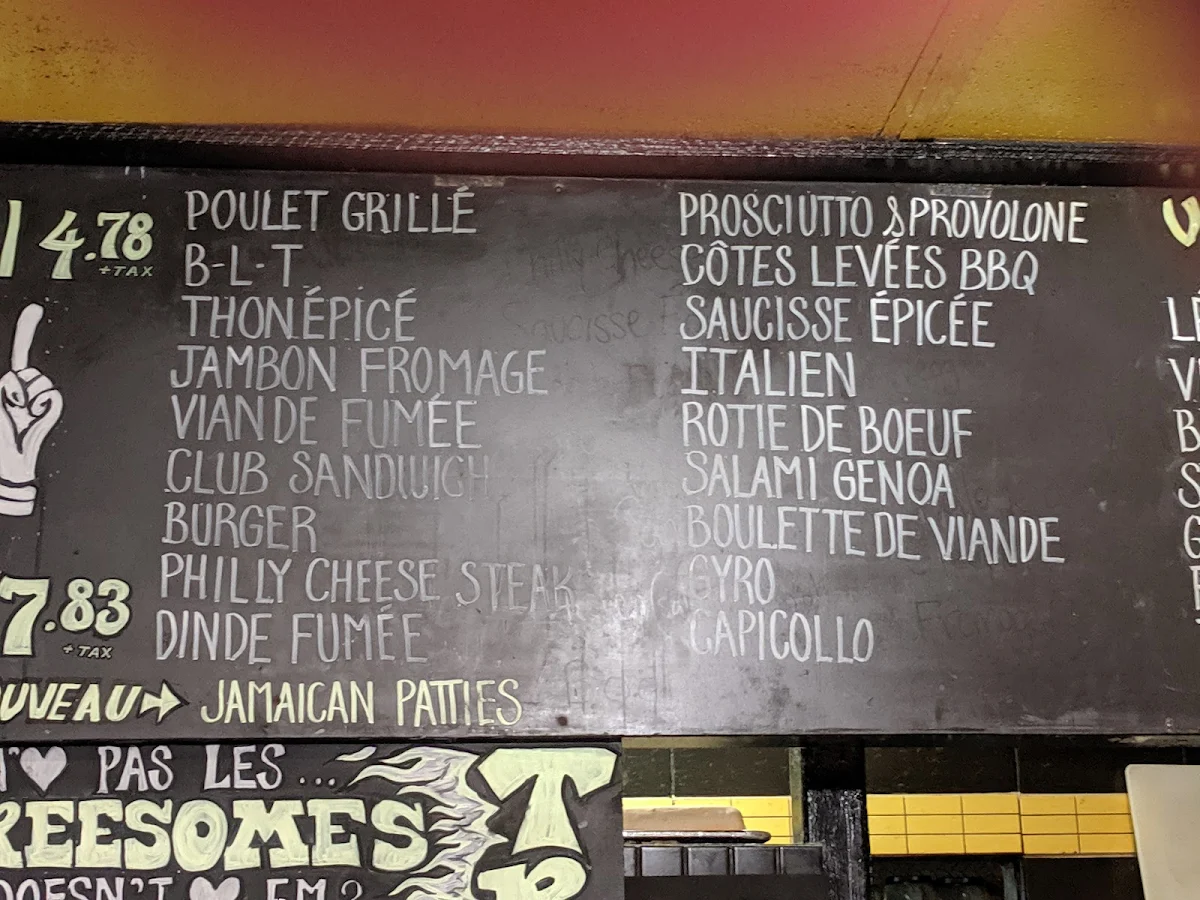 1 4.78
+TAX
POULET GRILLÉ
B-L-T
THON ÉPICÉ
JAMBON FROMAGE
VIANDE FUMÉE
CLUB SANDWICH
BURGER
PHILLY CHEESE STEAK
DINDE FUMÉE
7.83
+ TAX
PROSCIUTTO & PROVOLONE
CÔTES LEVÉES BBQ
SAUCISSE ÉPICÉE
ITALIEN
ROTIE DE BOEUF
SALAMI GENOA
BOULETTE DE VIANDE
GYRO
CAPICOLLO
UVEAU → JAMAICAN PATTIES
PAS LES ...
REESOMES
DOESN'T ♥ EM?